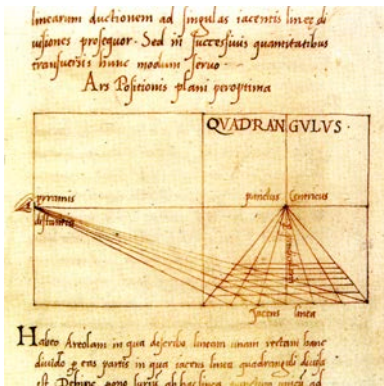 linearum ductionem ad singulas iacentis lineę di
uisiones prosequor. Sed in successiuis quantitatibus
transuersis hunc modum seruo.
Ars Positionis plani peroptima
QVADRANGVLVS.
pyramis
distantia
punctus Centricus
Iacens linea
Habeo Areolam in qua describo lineam unam rectam hanc
diuido per eas partis in qua iacens linea quadranguli diuisa
est. Dehinc pono sursum ab hac linea punctum unicum ad